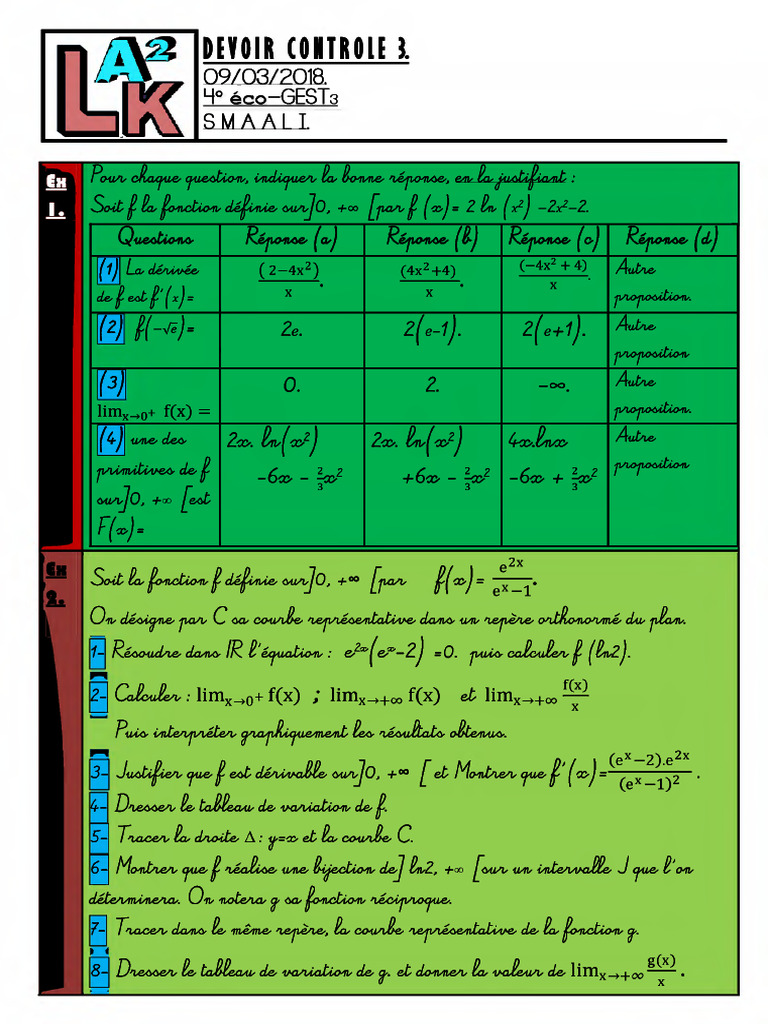 LA2K
DEVOIR CONTROLE 3.
09/03/2018.
4° éco-GEST3
SMAALI.
Ex 1.
Pour chaque question, indiquer la bonne réponse, en la justifiant :
Soit f la fonction définie sur]0, +∞ [par f (x)= 2 ln (x²) –2x²–2.
Questions Réponse (a) Réponse (b) Réponse (c) Réponse (d)
(1) La dérivée de f est f'(x)= (2−4x²)/x. (4x²+4)/x. (−4x²+4)/x. Autre proposition.
(2) f(−√e)= 2e. 2(e-1). 2(e+1). Autre proposition
(3) lim x→0+ f(x) = 0. 2. –∞. Autre proposition.
(4) une des primitives de f sur]0, +∞ [est F(x)= 2x. ln(x²) -6x - 2/3 x² 2x. ln(x²) +6x - 2/3 x² 4x.lnx -6x + 2/3 x² Autre proposition
Ex 2.
Soit la fonction f définie sur]0, +∞ [par f(x)= e^2x/(e^x−1).
On désigne par C sa courbe représentative dans un repère orthonormé du plan.
1- Résoudre dans IR l'équation : e^2x(e^x-2) =0. puis calculer f (ln2).
2- Calculer : lim x→0+ f(x) ; lim x→+∞ f(x) et lim x→+∞ f(x)/x
Puis interpréter graphiquement les résultats obtenus.
3- Justifier que f est dérivable sur]0, +∞ [ et Montrer que f'(x)=(e^x−2).e^2x/(e^x−1)² .
4- Dresser le tableau de variation de f.
5- Tracer la droite Δ : y=x et la courbe C.
6- Montrer que f réalise une bijection de] ln2, +∞ [sur un intervalle J que l'on
déterminera. On notera g sa fonction réciproque.
7- Tracer dans le même repère, la courbe représentative de la fonction g.
8- Dresser le tableau de variation de g. et donner la valeur de lim x→+∞ g(x)/x .